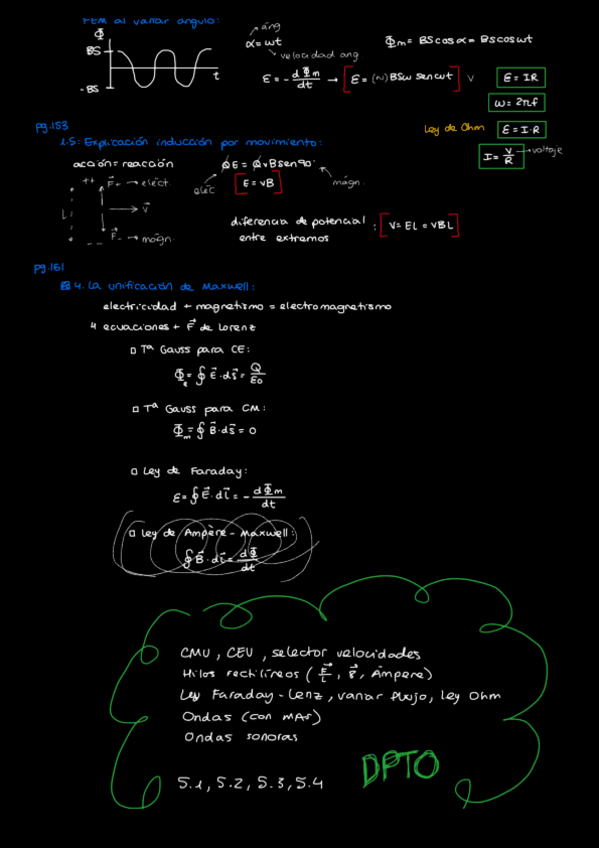 FEM al variar ángulo:
Φ
BS
-BS
t
áng
α = ωt
velocidad ang
Φm = BS cosα = BS cosωt
ε = - dΦm/dt → [ε = (N) BSω senωt]
V
ε = IR
ω = 2πf
Ley de Ohm
ε = I·R
I = V/R → voltaje
pg.153
1.5: Explicación inducción por movimiento:
acción = reacción
qE = qvBsen90·
eléc
magn.
[E = vB]
++ F+ → eléct.
L
v
-- F- → magn.
diferencia de potencial
entre extremos
: [V = EL = vBL]
pg.161
4. La unificación de Maxwell:
electricidad + magnetismo = electromagnetismo
4 ecuaciones + F de Lorenz
□ Tª Gauss para CE:
Φe = ∮ E·ds = Q/ε0
□ Tª Gauss para CM:
Φm = ∮ B·ds = 0
□ Ley de Faraday:
ε = ∮ E·dl = - dΦm/dt
□ Ley de Ampère-Maxwell:
∮ B·dl = dΦ/dt
CMU, CEU, selector velocidades
Hilos rectilíneos (F/L, B, Ampere)
Ley Faraday-Lenz, variar flujo, ley Ohm
Ondas (con MAS)
Ondas sonoras
5.1, 5.2, 5.3, 5.4
DPTO